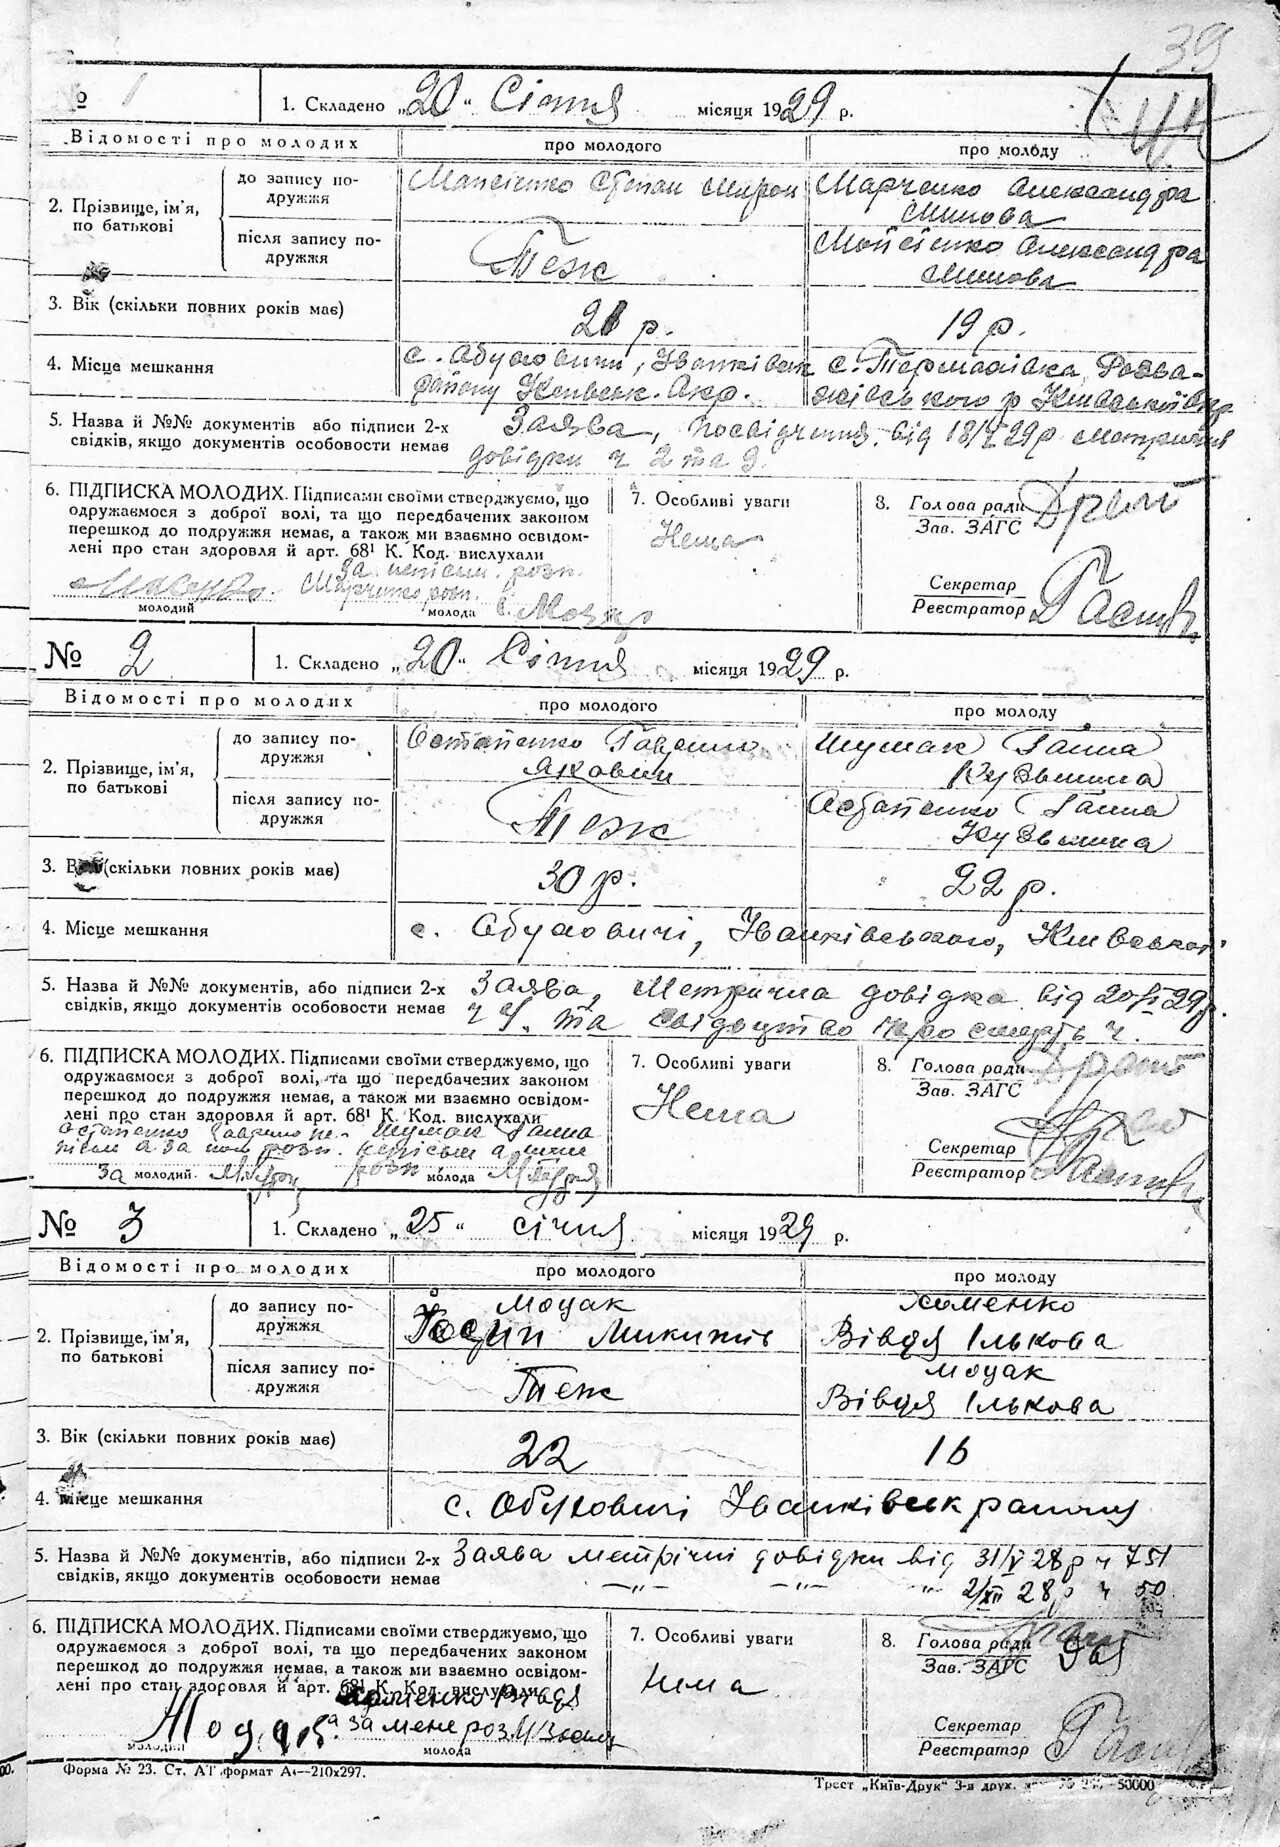 39
№ 1 1. Складено „20“ Січня місяця 1929 р.
Відомості про молодих про молодого про молоду
2. Прізвище, ім'я, по батькові
до запису подружжя Степан Мирон Марченко Александра
після запису подружжя Теж Мойсієнко Александра
3. Вік (скільки повних років має) 21 р. 19 р.
4. Місце мешкання с. Обуховичи, Іванківськ с. Термахівка, Розва-
району Київськ. Окр. жівського р Київської Окр
5. Назва й №№ документів або підписи 2-х Заява, посвідчення від 18/I 29р метричня
свідків, якщо документів особовости немає довідки ч 2 та 3.
6. ПІДПИСКА МОЛОДИХ. Підписами своїми стверджуємо, що 7. Особливі уваги 8. Голова ради
одружаємося з доброї волі, та що передбачених законом Зав. ЗАГС
перешкод до подружжя немає, а також ми взаємно освідом- Нема
лені про стан здоровля й арт. 68¹ К. Код. вислухали
за непісьм. розп. Секретар
Марченко розп. Реєстратор
молодий молода
№ 2 1. Складено „20“ Січня місяця 1929 р.
Відомості про молодих про молодого про молоду
2. Прізвище, ім'я, по батькові
до запису подружжя Остапенко Гаврило Шумак Ганна
Якович Кузьмина
після запису подружжя Теж Остапенко Ганна
Кузьмина
3. Вік (скільки повних років має) 30 р. 22 р.
4. Місце мешкання с. Обуховичі, Іванківського, Київської
5. Назва й №№ документів, або підписи 2-х Заява, Метрична довідка від 20/I 29р.
свідків, якщо документів особовости немає ч 4. та свідоцтво про смерть ч.
6. ПІДПИСКА МОЛОДИХ. Підписами своїми стверджуємо, що 7. Особливі уваги 8. Голова ради
одружаємося з доброї волі, та що передбачених законом Зав. ЗАГС
перешкод до подружжя немає, а також ми взаємно освідом- Нема
лені про стан здоровля й арт. 68¹ К. Код. вислухали
Остапенко Гаврило не- Шумак Ганна
розп. Секретар
за молодий розп молода Реєстратор
№ 3 1. Складено „25“ січня місяця 1929 р.
Відомості про молодих про молодого про молоду
2. Прізвище, ім'я, по батькові
до запису подружжя Моцак Хоменко
Микитів Вівдя Ількова
після запису подружжя Теж Моцак
Вівдя Ількова
3. Вік (скільки повних років має) 22 16
4. Місце мешкання с. Обуховичі Іванківськ району
5. Назва й №№ документів, або підписи 2-х Заява метрічні довідки від 31/V 28р ч 751
свідків, якщо документів особовости немає —„— —„— „ 2/XII 28р ч 50
6. ПІДПИСКА МОЛОДИХ. Підписами своїми стверджуємо, що 7. Особливі уваги 8. Голова ради
одружаємося з доброї волі, та що передбачених законом Зав. ЗАГС
перешкод до подружжя немає, а також ми взаємно освідом- нема
лені про стан здоровля й арт. 68¹ К. Код. вислухали
Хоменко Вівдя
а за мене роз Секретар
молодий молода Реєстратор
Форма № 23. Ст. АГ формат А4—210x297. Трест „Київ-Друк“ 3-я друк. 50000